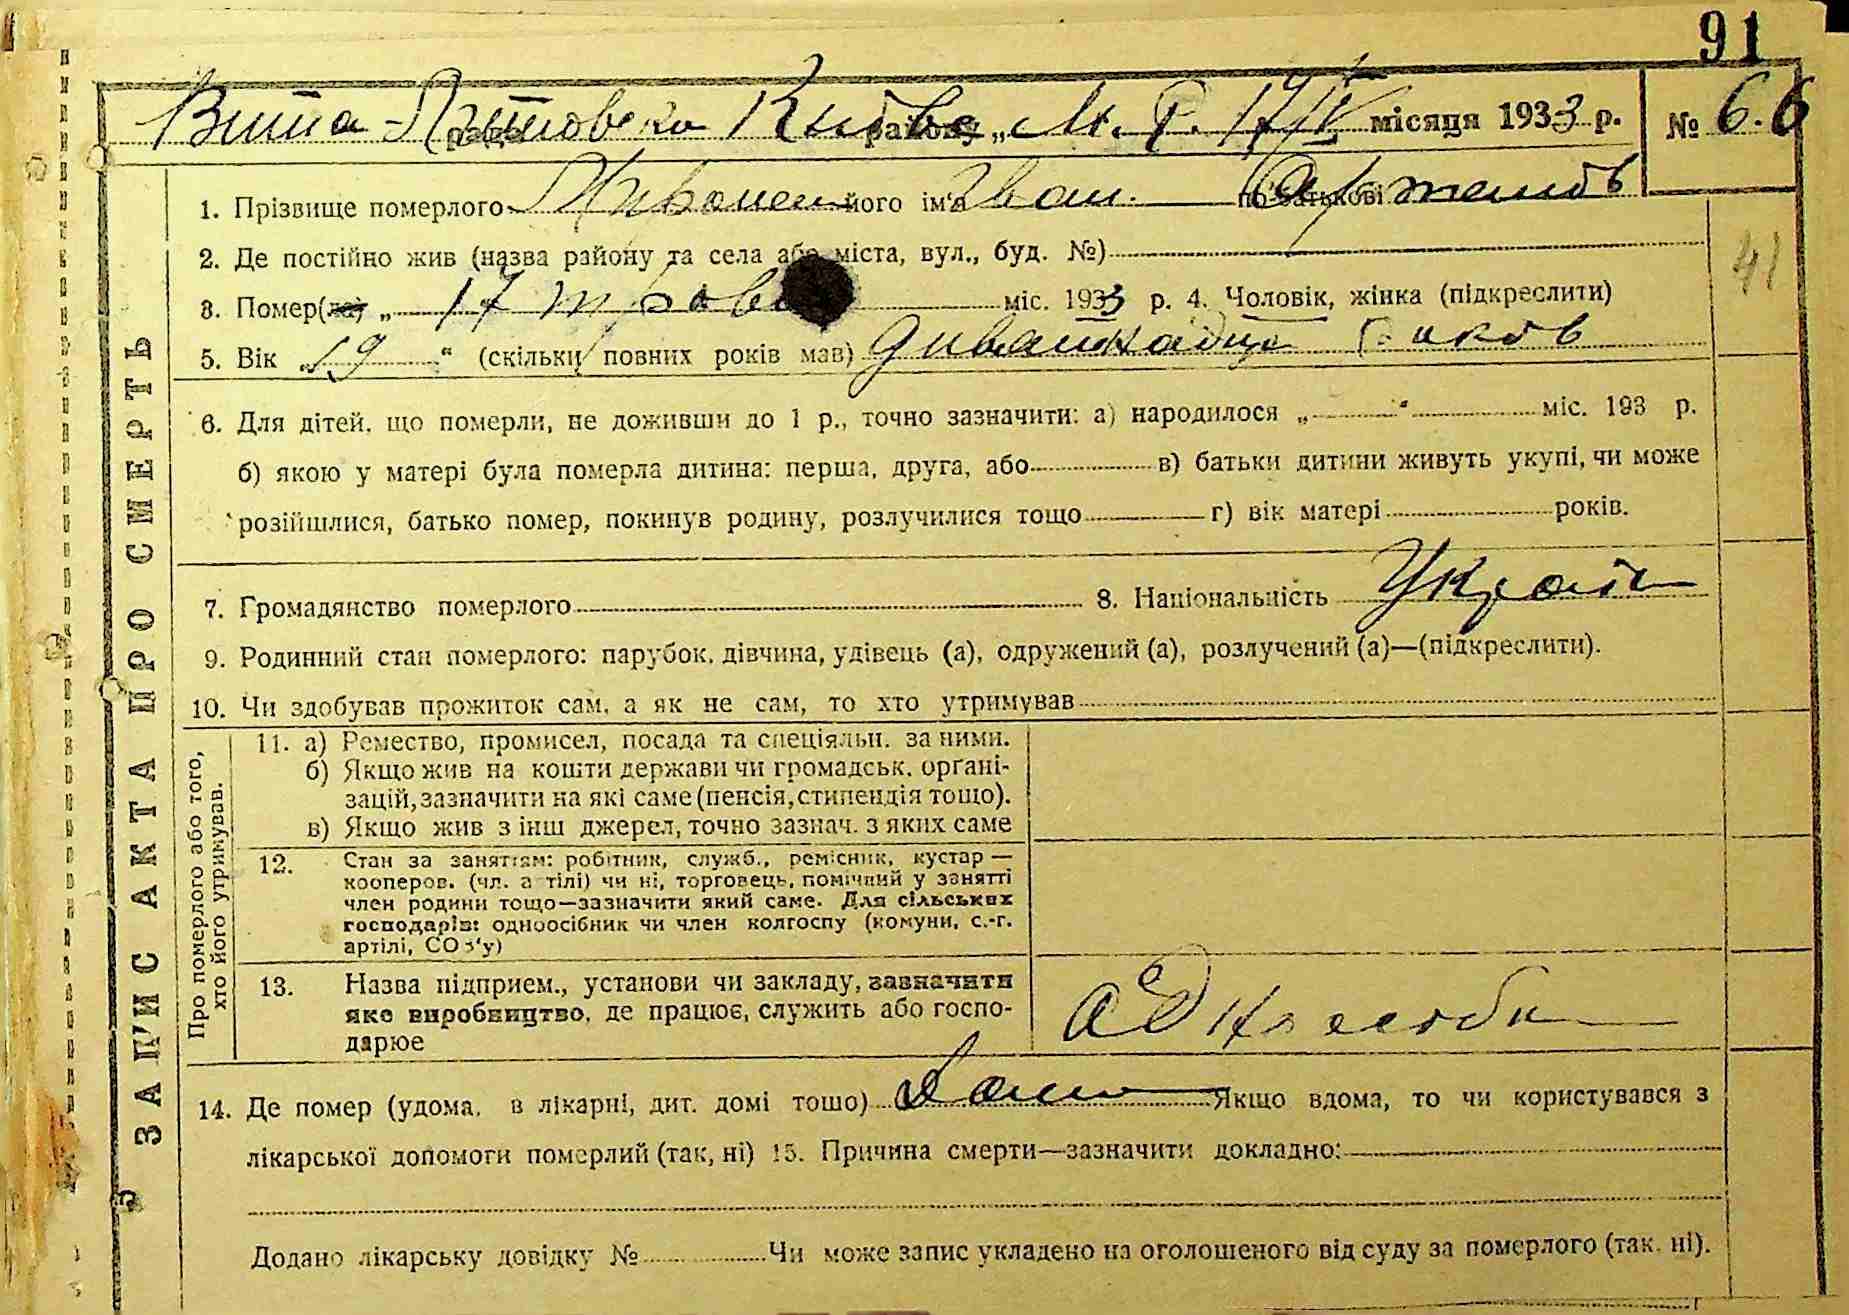 91
Вита-Литовска рада Київськ району „М. Р. 17/IV місяця 1933 р. № 66
1. Прізвище померлого його ім'я Іван по батькові
2. Де постійно жив (назва району та села або міста, вул., буд. №)
41
3. Помер(ла) „ 17 міс. 1933 р. 4. Чоловік, жінка (підкреслити)
5. Вік „19“ (скільки повних років мав)
6. Для дітей, що померли, не доживши до 1 р., точно зазначити: а) народилося „ “ міс. 193 р.
б) якою у матері була померла дитина: перша, друга, або в) батьки дитини живуть укупі, чи може
розійшлися, батько помер, покинув родину, розлучилися тощо г) вік матері років.
7. Громадянство померлого 8. Національність Україн
9. Родинний стан померлого: парубок, дівчина, удівець (а), одружений (а), розлучений (а)—(підкреслити).
10. Чи здобував прожиток сам, а як не сам, то хто утримував
Про померлого або того, хто його утримував.
11. а) Ремество, промисел, посада та спеціяльн. за ними.
б) Якщо жив на кошти держави чи громадськ. орґані-
зацій, зазначити на які саме (пенсія, стипендія тощо).
в) Якщо жив з інш джерел, точно зазнач. з яких саме
12. Стан за заняттям: робітник, служб., ремісник, кустар —
кооперов. (чл. артілі) чи ні, торговець, помічний у занятті
член родини тощо—зазначити який саме. Для сільських
господарів: одноосібник чи член колгоспу (комуни, с.-г.
артілі, СОЗ'у)
13. Назва підприєм., установи чи закладу, зазначити
яке виробництво, де працює, служить або госпо-
дарює
14. Де помер (удома, в лікарні, дит. домі тощо) Дома Якщо вдома, то чи користувався з
лікарської допомоги померлий (так, ні) 15. Причина смерти—зазначити докладно:
Додано лікарську довідку № Чи може запис укладено на оголошеного від суду за померлого (так, ні).
ЗАПИС АКТА ПРО СМЕРТЬ